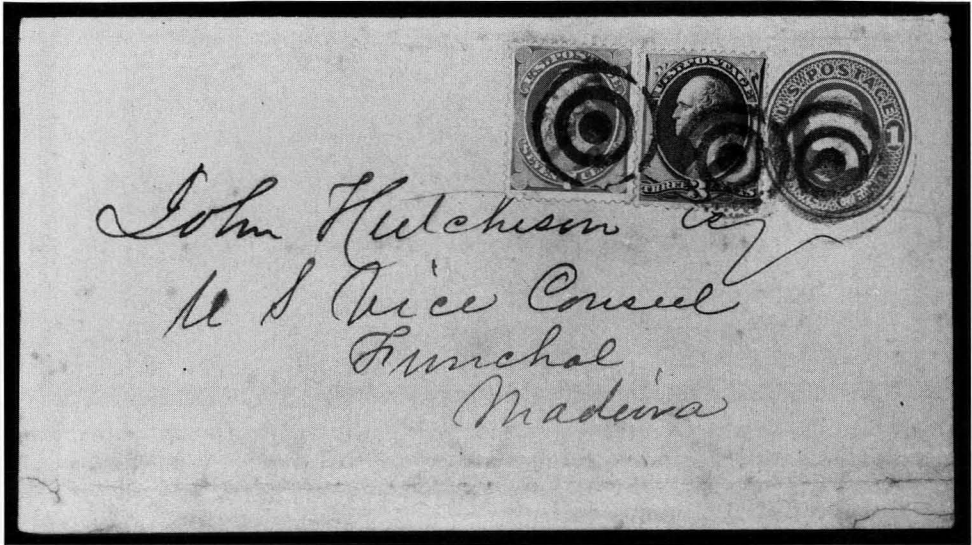 U.S. POSTAGE
SEVEN
U.S. POSTAGE
THREE 3 CENTS
U.S. POSTAGE
1
John Hutchison Esq
U S Vice Consul
Funchal
Madeira